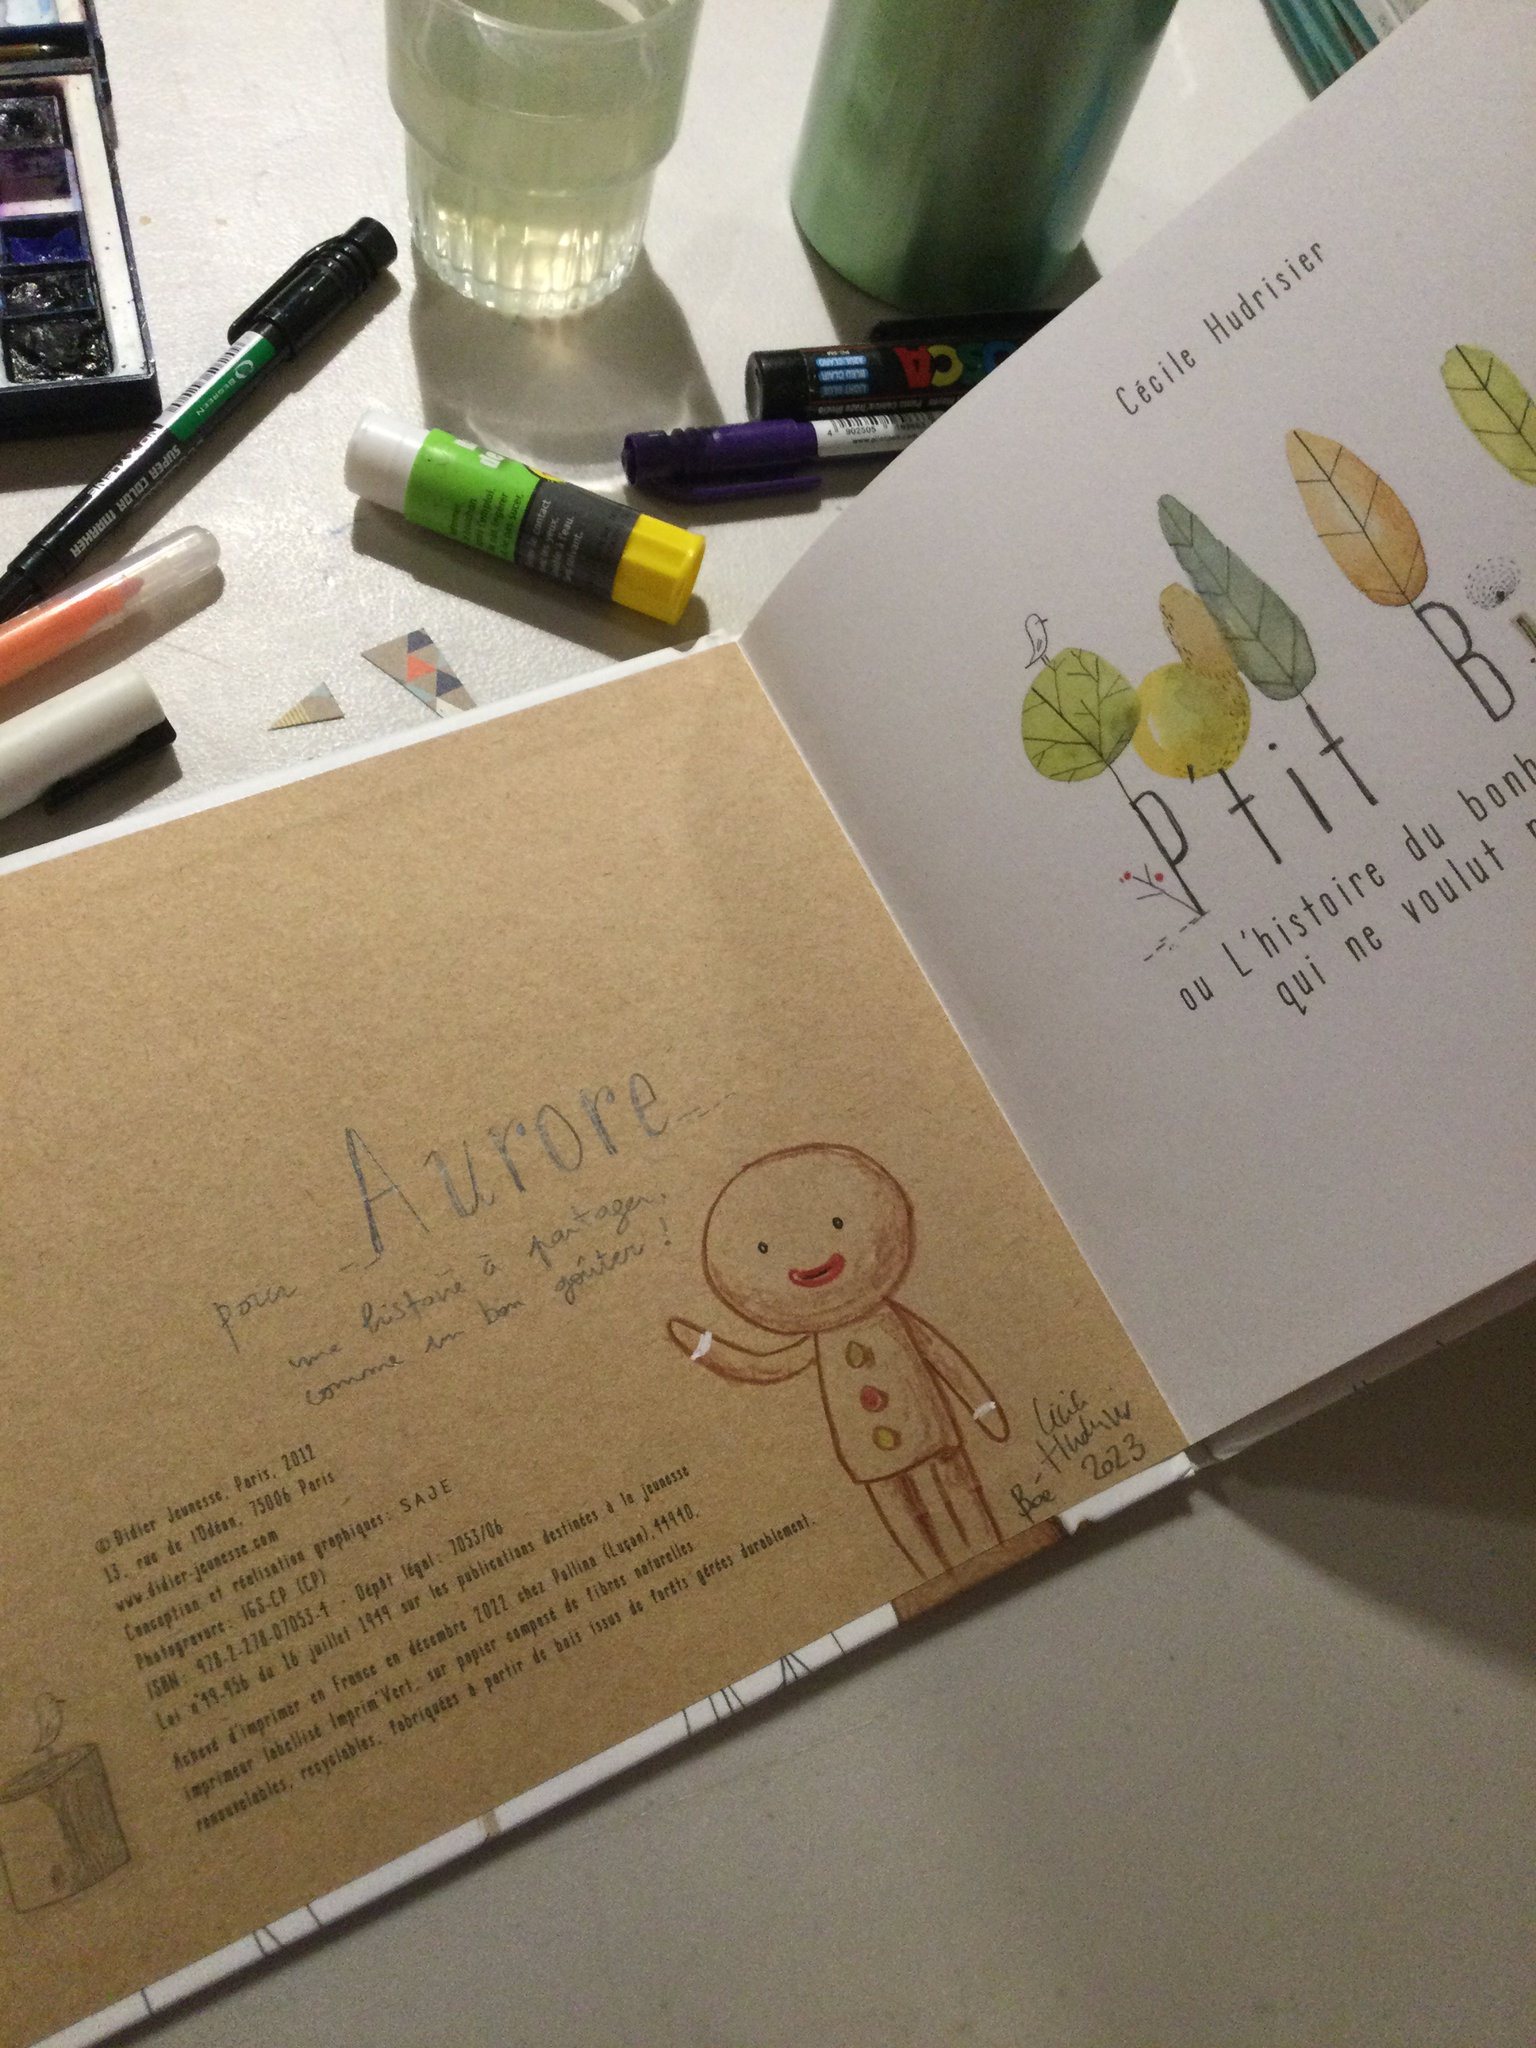 BEGREEN
SUPER COLOR MARKER
POSCA
AZUL CLARO
BLEU CLAIR
LIGHT BLUE
4 902505
de
contact
yeux.
l'eau.
Cécile Hudrisier
P'tit B
ou L'histoire du bonh
qui ne voulut p
pour Aurore
une histoire à partager,
comme un bon goûter !
Cécile
Hudrisier
2023
© Didier Jeunesse, Paris, 2012
13, rue de l'Odéon, 75006 Paris
www.didier-jeunesse.com
Conception et réalisation graphiques : SAJE
Photogravure : IGS-CP (CP)
ISBN : 978-2-278-07053-4 - Dépôt légal : 7053/06
Loi n°49-956 du 16 juillet 1949 sur les publications destinées à la jeunesse
Achevé d'imprimer en France en décembre 2022 chez Pollina (Luçon), 44940.
imprimeur labellisé Imprim'Vert, sur papier composé de fibres naturelles
renouvelables, recyclables, fabriquées à partir de bois issus de forêts gérées durablement.